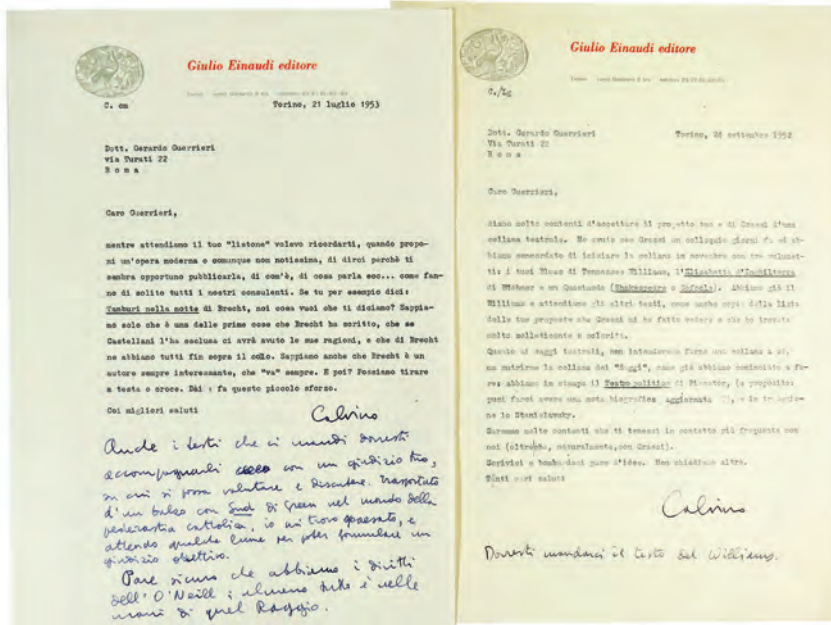 Giulio Einaudi editore
C. cm
Torino, 21 luglio 1953
Dott. Gerardo Guerrieri
via Turati 22
R o m a
Caro Guerrieri,
mentre attendiamo il tuo "listone" volevo ricordarti, quando propo-
ni un'opera moderna o comunque non notissima, di dirci perchè ti
sembra opportuno pubblicarla, di com'è, di cosa parla ecc... come fan-
no di solito tutti i nostri consulenti. Se tu per esempio dici:
Tamburi nella notte di Brecht, noi cosa vuoi che ti diciamo? Sappia-
mo solo che è una delle prime cose che Brecht ha scritto, che se
Castellani l'ha esclusa ci avrà avuto le sue ragioni, e che di Brecht
ne abbiamo tutti fin sopra il collo. Sappiamo anche che Brecht è un
autore sempre interessante, che "va" sempre. E poi? Possiamo tirare
a testa o croce. Dài : fa questo piccolo sforzo.
Coi migliori saluti
Calvino
Anche i testi che ci mandi dovresti
accompagnarli con un giudizio tuo,
su cui si possa valutare e discutere. Trasportato
d'un balzo con Sud di Green nel mondo della
pederastia cattolica, io mi trovo spaesato, e
attendo qualche lume per poter formulare un
giudizio obiettivo.
Pare sicuro che abbiamo i diritti
dell'O'Neill ; almeno tutto è nelle
mani di quel Raggio.
Giulio Einaudi editore
C./
Dott. Gerardo Guerrieri
Via Turati 22
R o m a
Torino, 24 settembre 1952
Caro Guerrieri,
siamo molto contenti d'accettare il progetto tuo e di Grassi d'una
collana teatrale. Ho avuto con Grassi un colloquio giorni fa ed ab-
biamo concordato di iniziare la collana in novembre con tre volumet-
ti: i tuoi Blues di Tennessee Williams, l'Elisabetta d'Inghilterra
di Brückner e un Quadundo (Shakespeare o Sofocle). Abbiamo già il
Williams e attendiamo gli altri testi, come anche copia della lista
delle tue proposte che Grassi mi ha fatto vedere e che ho trovato
molto sollecitante e colorita.
Quanto ai saggi teatrali, non intenderemmo farne una collana a sé,
ma nutrirne la collana dei "Saggi", come già abbiamo cominciato a fa-
re: abbiamo in stampa il Teatro politico di Piscator, (a proposito:
puoi farci avere una nota biografica aggiornata ?), e in
ne lo Stanislavsky.
Saremmo molto contenti che ti tenessi in contatto più frequente con
noi (oltreché, naturalmente, con Grassi).
Scrivici e bombardaci pure d'idee. Non chiediamo altro.
Tanti cari saluti
Calvino
Dovresti mandarci il testo del Williams.